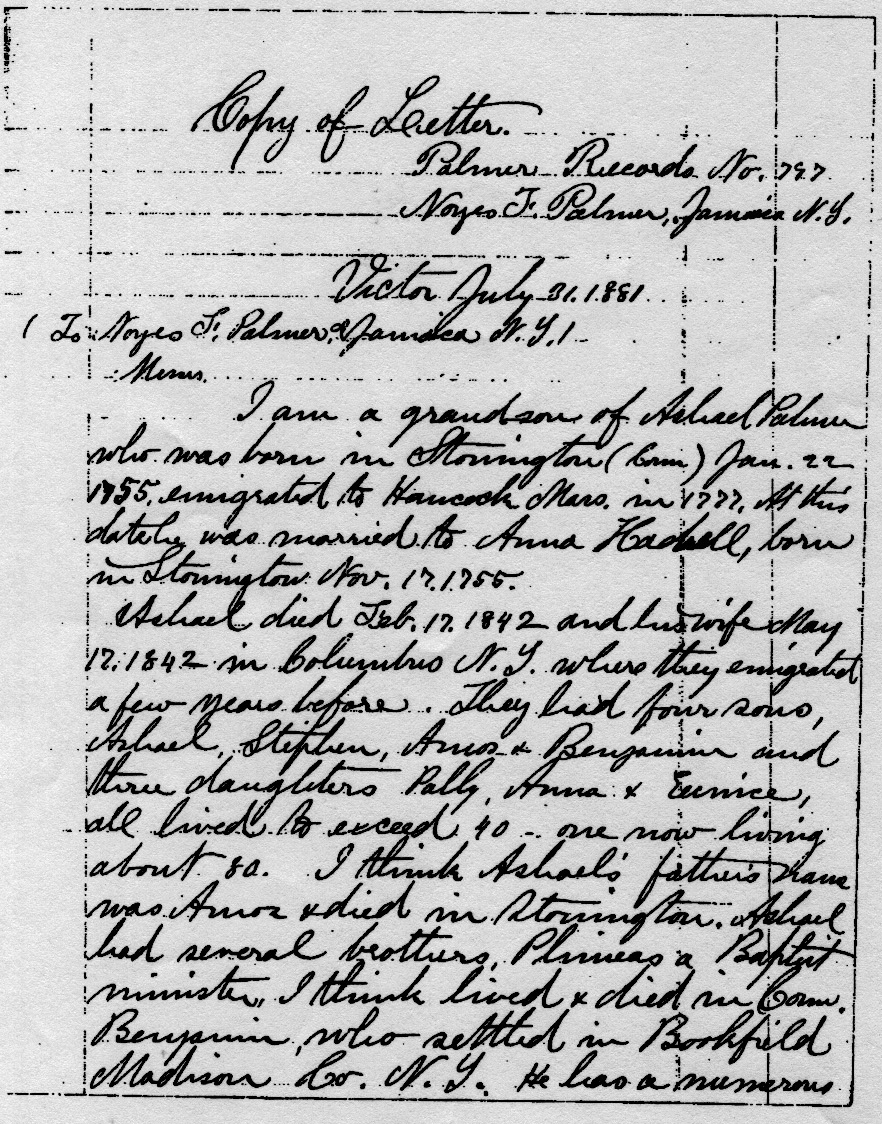 Copy of Letter.
Palmer Records No. 797
Noyes F. Palmer, Jamaica N.Y.
Victor July 31. 1881
( To Noyes F. Palmer, Jamaica N.Y. )
Messrs.
I am a grandson of Ashael Palmer
who was born in Stonington (Conn) Jan. 22
1755, emigrated to Hancock Mass. in 1777. At this
date he was married to Anna Hackell, born
in Stonington Nov. 17. 1755.
Ashael died Feb. 17. 1842 and his wife May
17. 1842 in Columbus N.Y. where they emigrated
a few years before. They had four sons,
Ashael, Stephen, Amos & Benjamin and
three daughters Polly, Anna & Eunice,
all lived to exceed 40 - one now living
about 80. I think Ashael's father's name
was Amos & died in Stonington. Ashael
had several brothers, Phineas a Baptist
minister, I think lived & died in Conn.
Benjamin, who settled in Bookfield
Madison Co. N.Y. He has a numerous